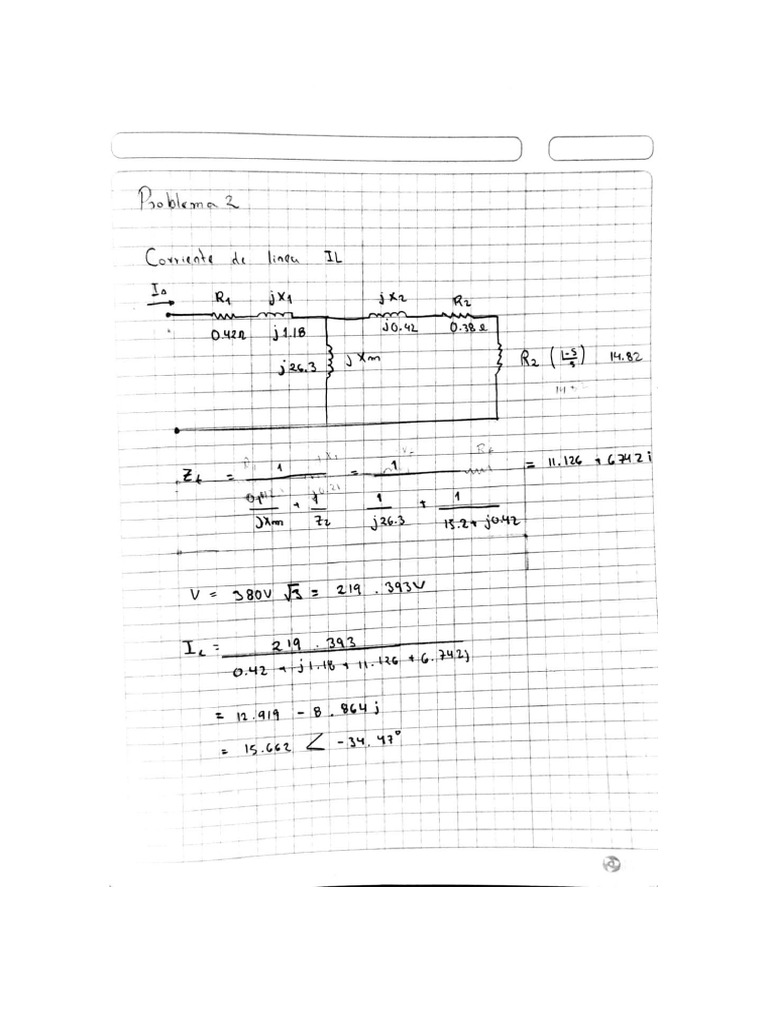 Problema 2
Corriente de linea IL
I
R1 jX1 jX2 R2
0.42Ω j1.18 j0.42 0.38Ω
j26.3 jXm R2 (1-S/S) 14.82
Zt = 1 / (1/jXm + 1/Z2) = 1 / (1/j26.3 + 1/(15.2+j0.42)) = 11.126 + 6.742i
V = 380V √3 = 219.393V
IL = 219.393 / (0.42 + j1.18 + 11.126 + 6.742j)
= 12.919 - 8.864j
= 15.662 ∠ -34.47°